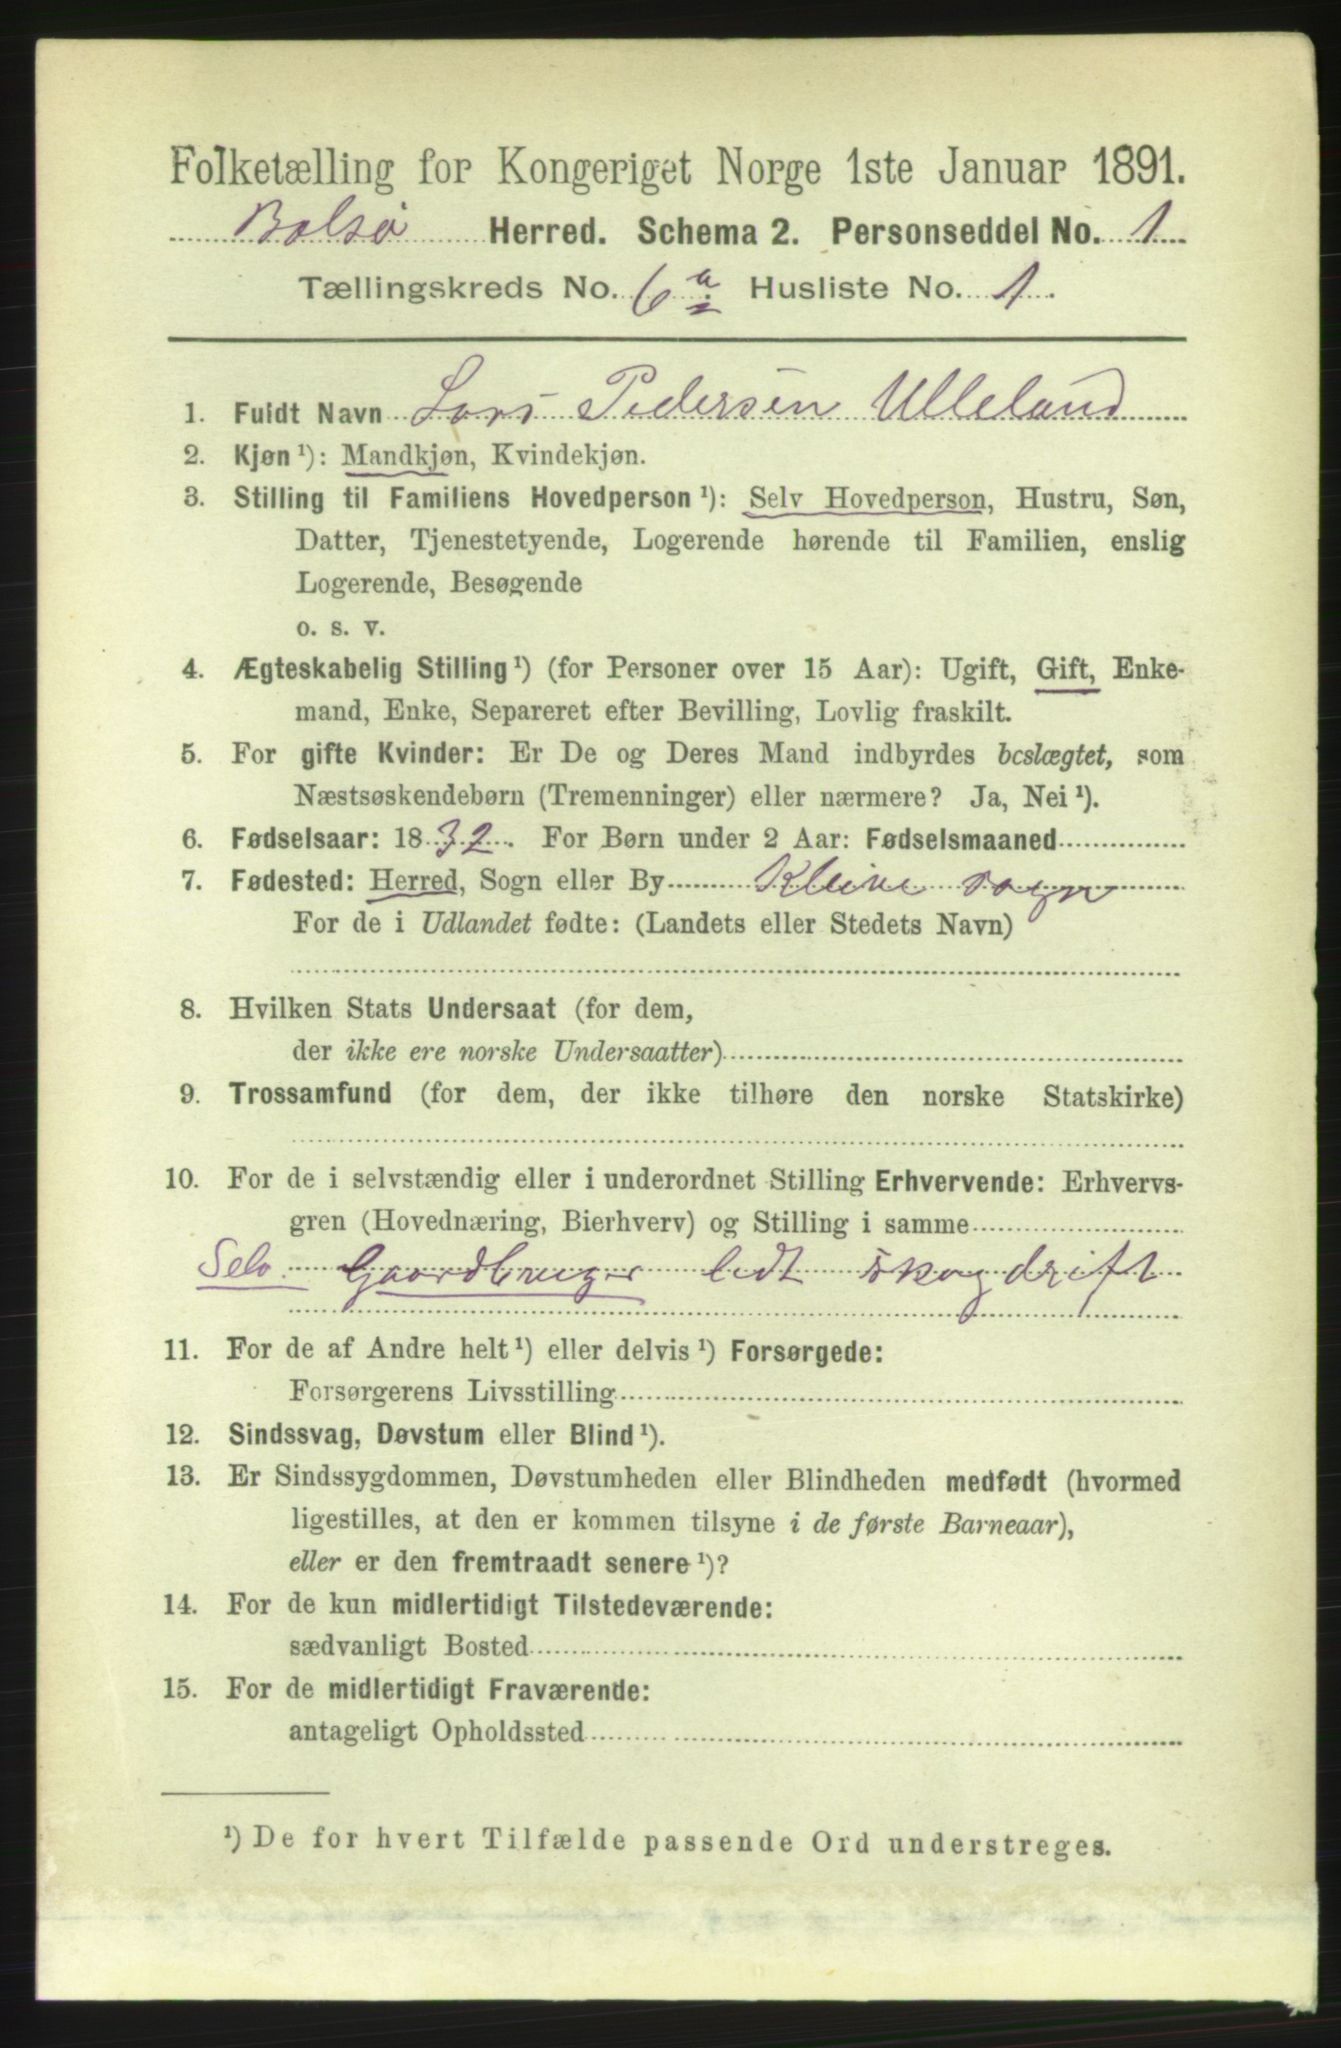 Folketælling for Kongeriget Norge 1ste Januar 1891.
Bolsø Herred. Schema 2. Personseddel No. 1
Tællingskreds No. 6a Husliste No. 1.
1. Fuldt Navn Lars Pedersen Ulleland
2. Kjøn ¹): Mandkjøn, Kvindekjøn.
3. Stilling til Familiens Hovedperson ¹): Selv Hovedperson, Hustru, Søn,
Datter, Tjenestetyende, Logerende hørende til Familien, enslig
Logerende, Besøgende
o. s. v.
4. Ægteskabelig Stilling ¹) (for Personer over 15 Aar): Ugift, Gift, Enke-
mand, Enke, Separeret efter Bevilling, Lovlig fraskilt.
5. For gifte Kvinder: Er De og Deres Mand indbyrdes beslægtet, som
Næstsøskendebørn (Tremenninger) eller nærmere? Ja, Nei ¹).
6. Fødselsaar: 1832. For Børn under 2 Aar: Fødselsmaaned
7. Fødested: Herred, Sogn eller By Kleive sogn
For de i Udlandet fødte: (Landets eller Stedets Navn)
8. Hvilken Stats Undersaat (for dem,
der ikke ere norske Undersaatter)
9. Trossamfund (for dem, der ikke tilhøre den norske Statskirke)
10. For de i selvstændig eller i underordnet Stilling Erhvervende: Erhvervs-
gren (Hovednæring, Bierhverv) og Stilling i samme
Selv. Gaardbruger lidt skogdrift
11. For de af Andre helt ¹) eller delvis ¹) Forsørgede:
Forsørgerens Livsstilling
12. Sindssvag, Døvstum eller Blind ¹).
13. Er Sindssygdommen, Døvstumheden eller Blindheden medfødt (hvormed
ligestilles, at den er kommen tilsyne i de første Barneaar),
eller er den fremtraadt senere ¹)?
14. For de kun midlertidigt Tilstedeværende:
sædvanligt Bosted
15. For de midlertidigt Fraværende:
antageligt Opholdssted
¹) De for hvert Tilfælde passende Ord understreges.